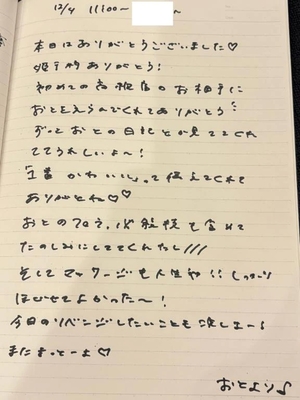 12/4 11:00〜
本日はありがとうございました♡
ありがとう!
初めての お相手に
おとをえらんでくれてありがとう
ずっとおとの日記とか見ててくれ
ててうれしいよ〜!
かわいい って伝えてくれて
ありがとね♡♡
おとの
たのしみにしててくれたし///
そしてマッサージも人生初!! しっかり
よかった〜!
今日のリベンジしたいことも
またきっとーよ♡
おとより♪